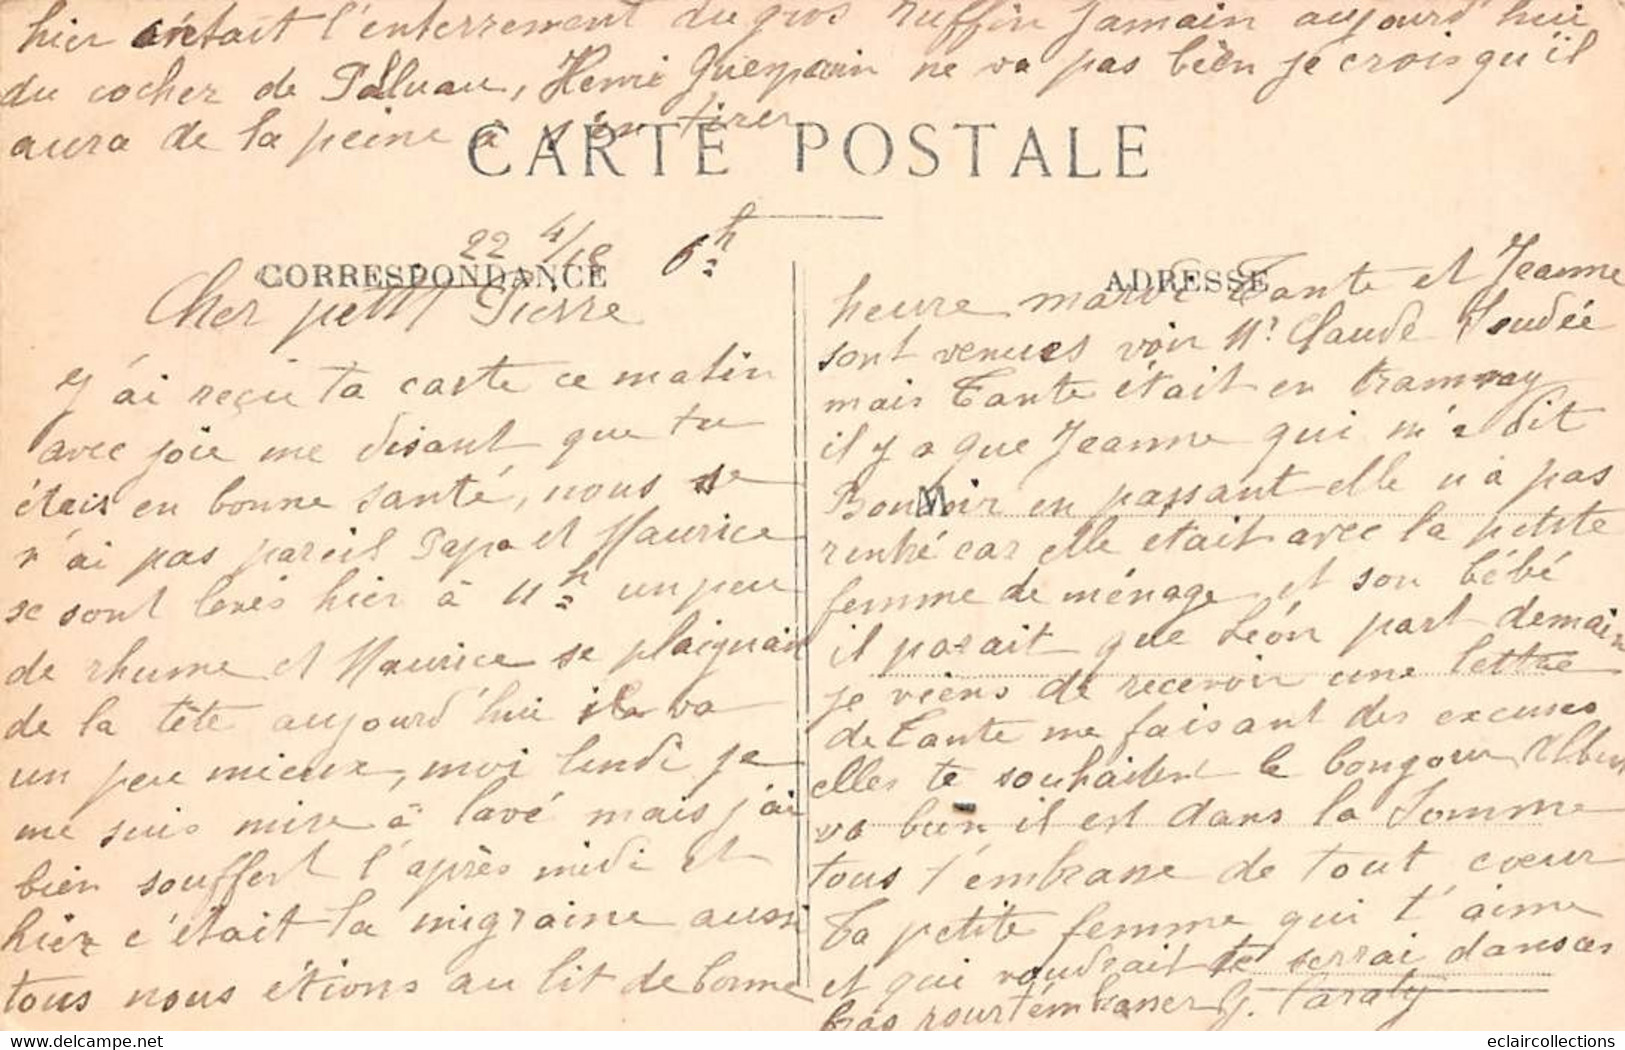 hier c'était l'enterrement du gros Ruffin Jamain aujourd'hui
du cocher de Palluau, Henri Guerpain ne va pas bien je crois qu'il
aura de la peine à s'en tirer
CARTE POSTALE
22 4/18 6h
CORRESPONDANCE
Cher petit Pierre
J'ai reçu ta carte ce matin
avec joie me disant que tu
étais en bonne santé, nous se
n'ai pas pareil Papa et Maurice
se sont levés hier à 11h un peu
de rhume et Maurice se plaignait
de la tête aujourd'hui va
un peu mieux, moi lundi je
me suis mise à lavé mais j'ai
bien souffert l'après midi et
hier c'était la migraine aussi
tous nous étions au lit de bonne
ADRESSE
heure mardi Tante et Jeanne
sont venues voir Mr Claude
mais Tante était en tramway
il y a que Jeanne qui m'a dit
Bonsoir en passant elle n'a pas
rentré car elle était avec la petite
femme de ménage et son bébé
il parait que Léon part demain
je viens de recevoir une lettre
de Tante me faisant des excuses
elles te souhaitent le bongour Albert
va bien il est dans la Somme
tous t'embrasse de tout cœur
Ta petite femme qui t'aime
et qui voudrait te serrai dans ces
bras pour t'embrasser G.
eclaircollections